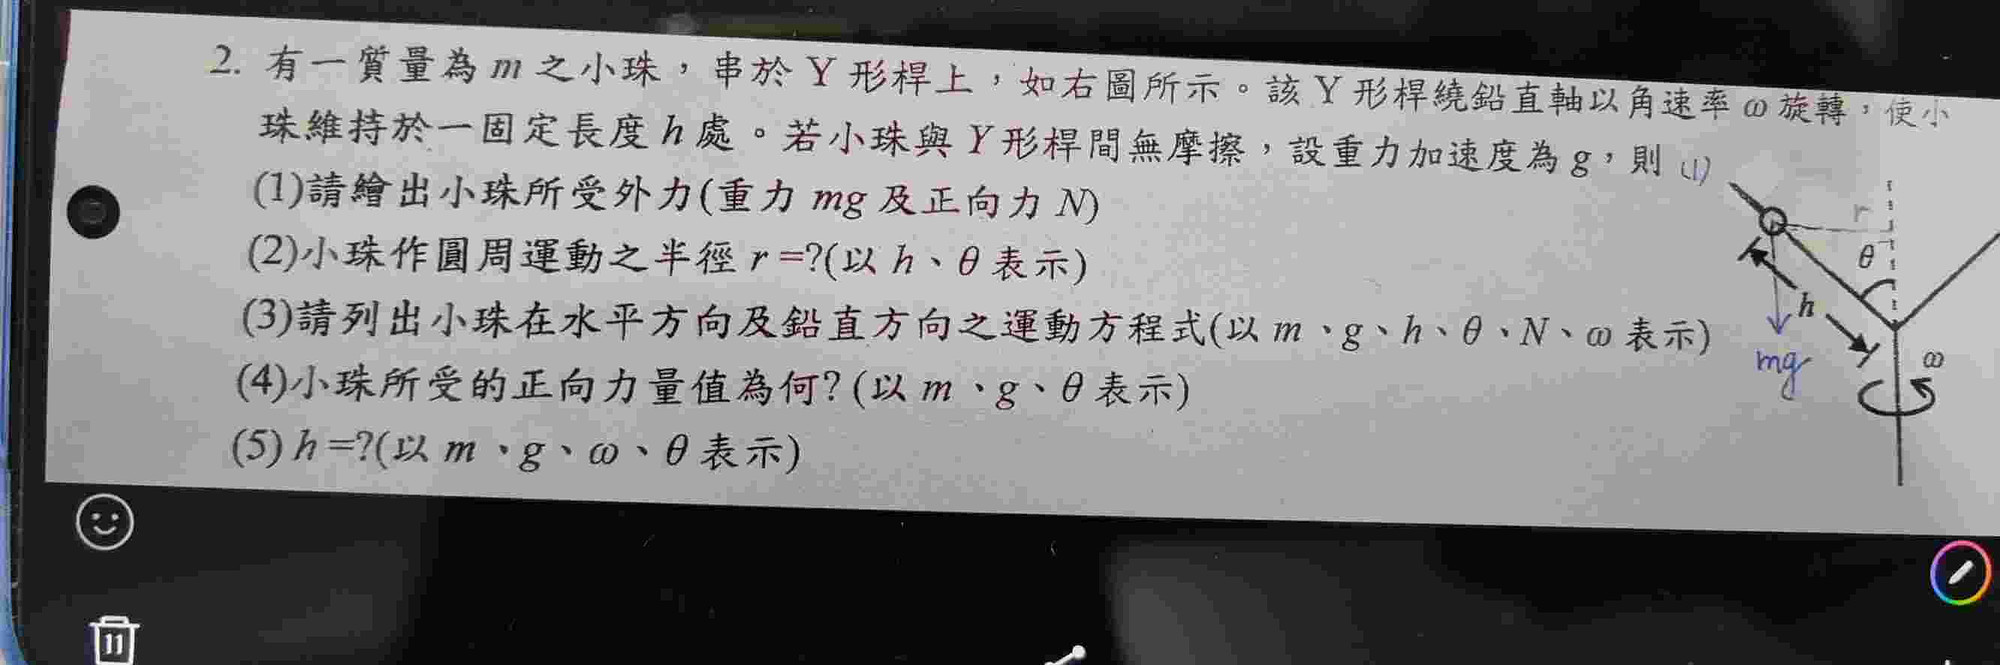 2. 有一質量為 m 之小珠，串於 Y 形桿上，如右圖所示。該 Y 形桿繞鉛直軸以角速率 ω 旋轉，使小
珠維持於一固定長度 h 處。若小珠與 Y 形桿間無摩擦，設重力加速度為 g，則 (1)
(1)請繪出小珠所受外力(重力 mg 及正向力 N)
(2)小珠作圓周運動之半徑 r =?(以 h、θ 表示)
(3)請列出小珠在水平方向及鉛直方向之運動方程式(以 m、g、h、θ、N、ω 表示)
(4)小珠所受的正向力量值為何?(以 m、g、θ 表示)
(5) h =?(以 m、g、ω、θ 表示)
r
θ
h
mg
ω